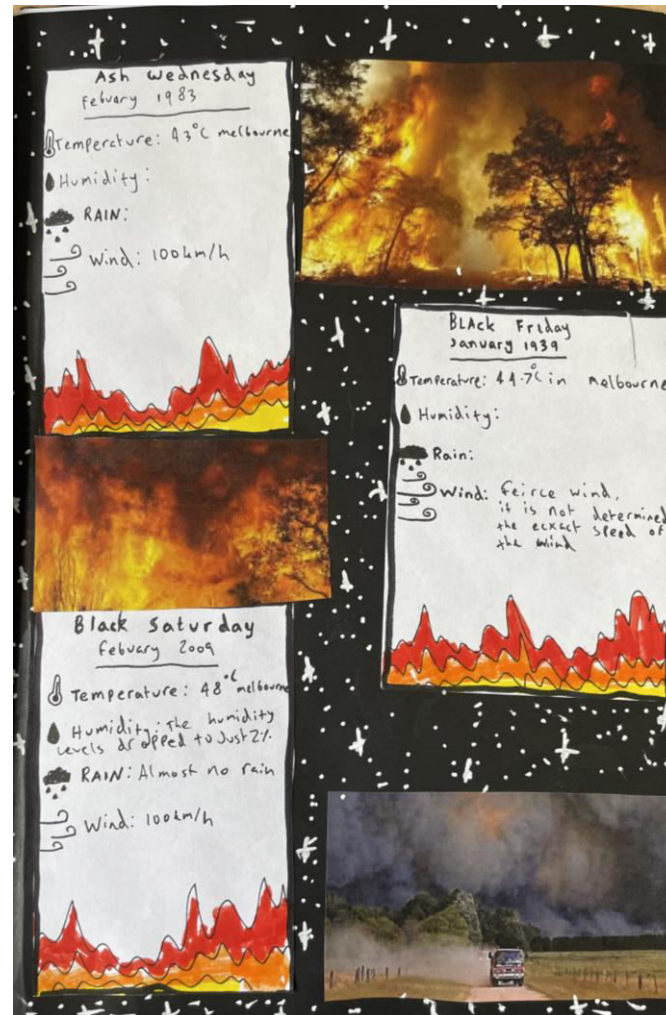 Ash Wednesday
Febuary 1983
Temperature: 43°C melbourne
Humidity:
RAIN:
Wind: 100km/h
BLAck Friday
January 1939
Temperature: 44.7°C in melbourne
Humidity:
Rain:
Wind: feirce wind,
it is not determined
the ecxact speed of
the wind
Black Saturday
Febuary 2009
Temperature: 48°C melbourne
Humidity: The humidity
levels dropped to Just 2%
RAIN: Almost no rain
Wind: 100km/h